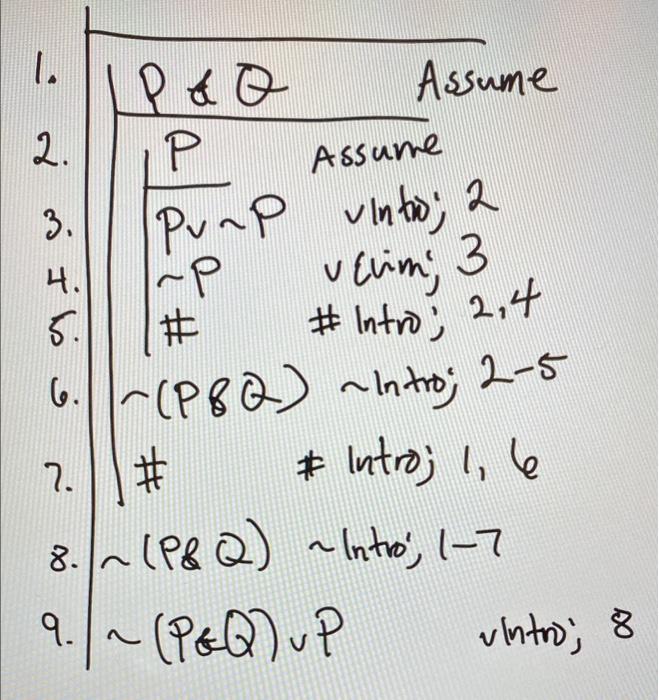 1. P & Q Assume
2. P Assume
3. P∨~P ∨Intro; 2
4. ~P ∨Elim; 3
5. # # Intro; 2,4
6. ~(P&Q) ~Intro; 2-5
7. # # Intro; 1, 6
8. ~(P&Q) ~Intro; 1-7
9. ~(P&Q)∨P ∨Intro; 8